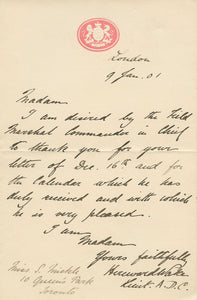 London
9 Jan. 01
Madam
I am desired by the Field
Marshal Commander in Chief
to thank you for your
letter of Dec. 16th and for
the Calendar which he has
duly received and with which
he is very pleased.
I am
Madam
Yours faithfully
Hereward Wake
Lieut. A.D.C.
Miss S. Mickle
10 Queen's Park
Toronto